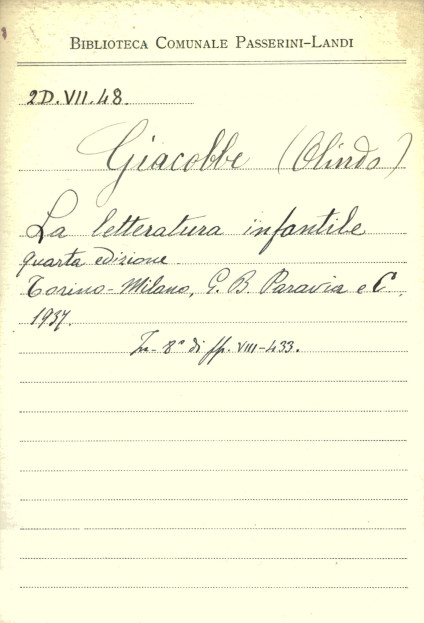 BIBLIOTECA COMUNALE PASSERINI-LANDI
2D.VII.48.
Giacobbe (Olindo)
La letteratura infantile
quarta edizione.
Torino-Milano, G. B. Paravia e C.
1937.
In-8° di pp. VIII-433.